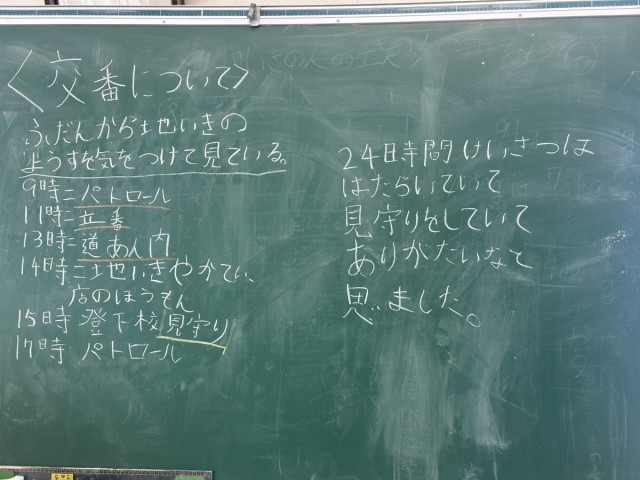 〈交番について〉
ふだんから地いきの
ようすを気をつけて見ている。
9時=パトロール
11時=立番
13時=道あん内
14時=地いきやかてい、
店のほうもん
15時 登下校見守り
17時 パトロール
24時間けいさつは
はたらいていて
見守りをしていて
ありがたいなと
思いました。